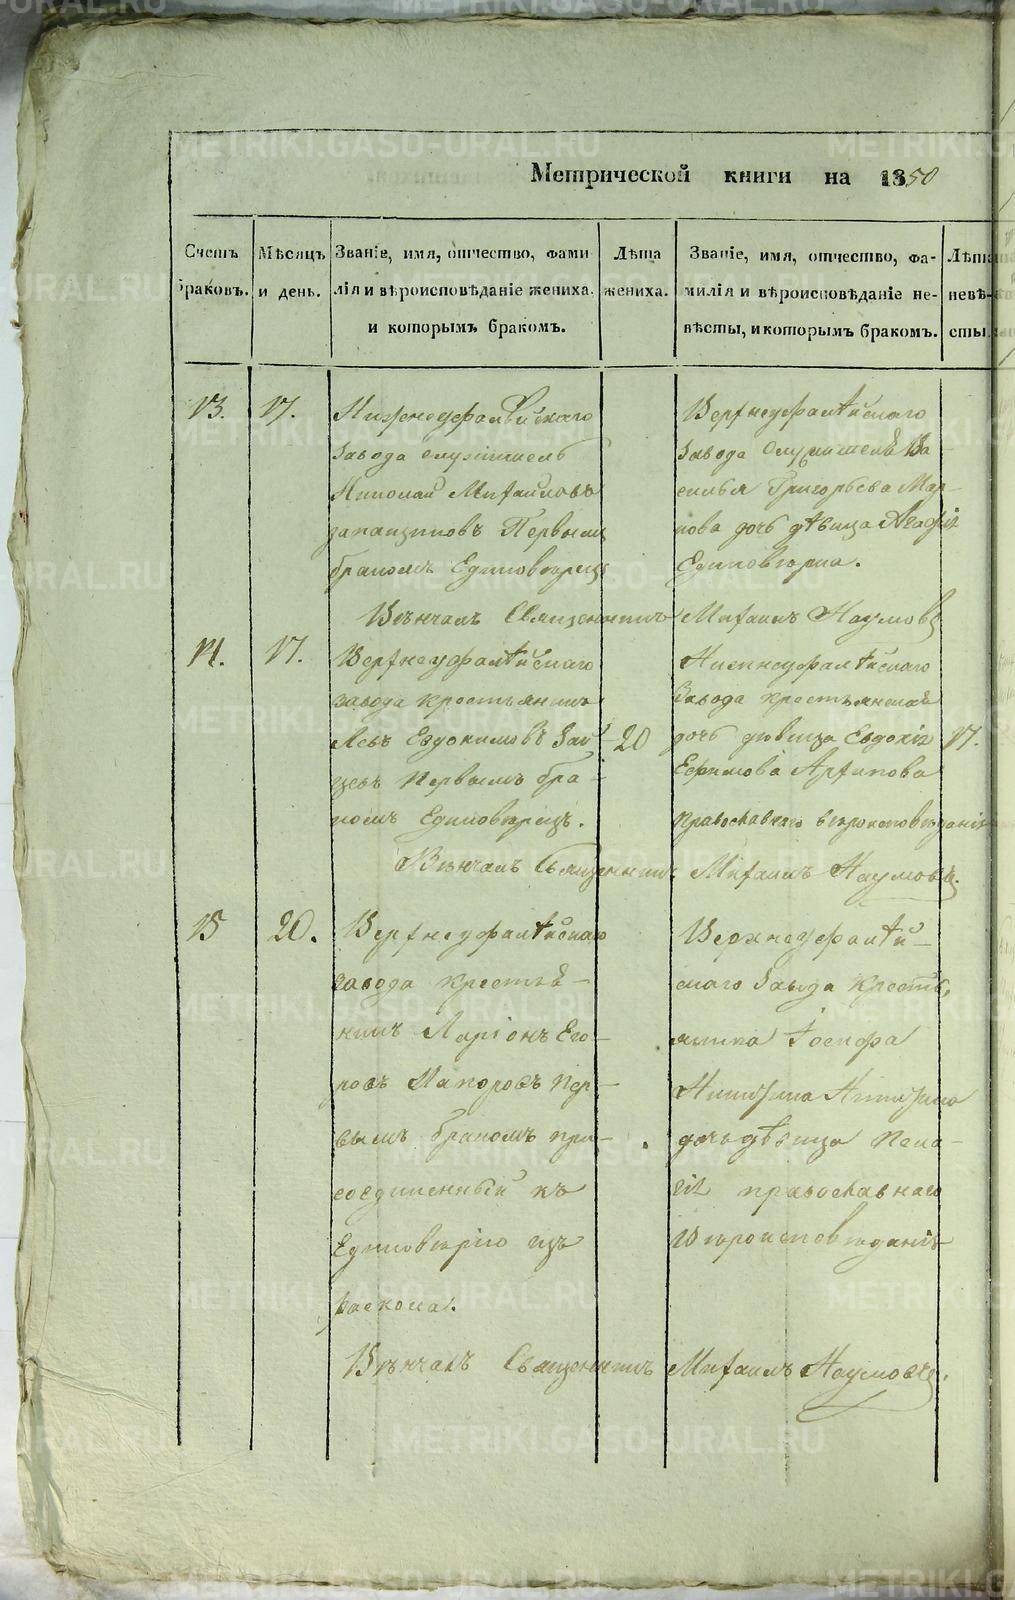 Метрической книги на 1850
Счетъ браковъ.
Мѣсяцъ и день.
Званіе, имя, отчество, фами
лія и вѣроисповѣданіе жениха.
и которымъ бракомъ.
Лѣта
жениха.
Званіе, имя, отчество, фа-
милія и вѣроисповѣданіе не-
вѣсты, и которымъ бракомъ.
Лѣта
невѣ-
сты.
13. 17.
Нижнеуфалѣйскаго
завода служитель
Николай Михайловъ
Первымъ
бракомъ Единовѣрецъ
Верхнеуфалѣйскаго
завода служителя Ва-
силья Григорьева Мар-
кова дочь дѣвица Агафія
Единовѣрка.
Вѣнчалъ Священникъ Михаилъ Наумовъ
14. 17.
Верхнеуфалѣйскаго
завода крестьянинъ
Левъ Евдокимовъ Зай
цевъ Первымъ бра-
комъ Единовѣрецъ.
20
Нижнеуфалѣйскаго
Завода крестьянская
дочь дѣвица Евдокія
Ефимова Архипова
православнаго вѣроисповѣданія
17.
Вѣнчалъ Священникъ Михаилъ Наумовъ.
15 20.
Верхнеуфалѣйскаго
завода крестья-
нинъ Ларіонъ Его-
ровъ Макоровъ пер-
вымъ бракомъ при-
соединенный къ
Единовѣрію изъ
раскола.
Верхнеуфалѣй-
скаго Завода Кресть,
янина Іосифа
Никитина
дочь дѣвица Пела-
гія православнаго
вѣроисповѣданія
Вѣнчалъ Священникъ Михаилъ Наумовъ.
METRIKI.GASO-URAL.RU